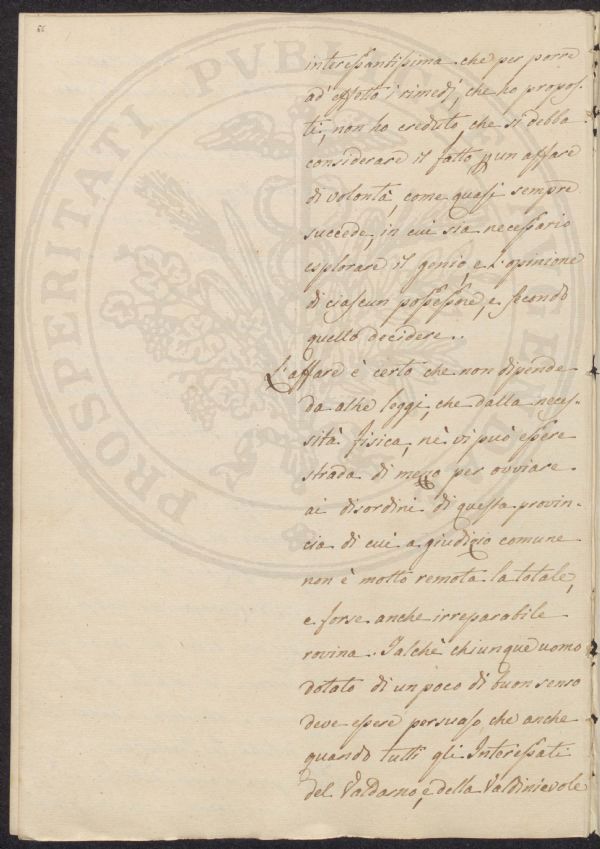 66
PROSPERITATI PVBLICAE AVGENDAE
interessantissima che per porre
ad effetto i rimedj, che ho propos-
ti, non ho creduto, che si debba
considerare il fatto p un affare
di volontà, come quasi sempre
succede, in cui sia necessario
esplorare il genio, e l'opinione
di ciascun possessore, e secondo
quello decidere.
L'affare è certo che non dipende
da altre leggi, che dalla neces-
sità fisica, nè vi può essere
strada di mezzo per ovviare
ai disordini di questa provin-
cia di cui a giudizio comune
non è molto remota la totale,
e forse anche irreparabile
rovina. Talchè chiunque uomo
dotato di un poco di buon senso
deve essere persuaso che anche
quando tutti gli Interessati
del Valdarno, e della Valdinievole